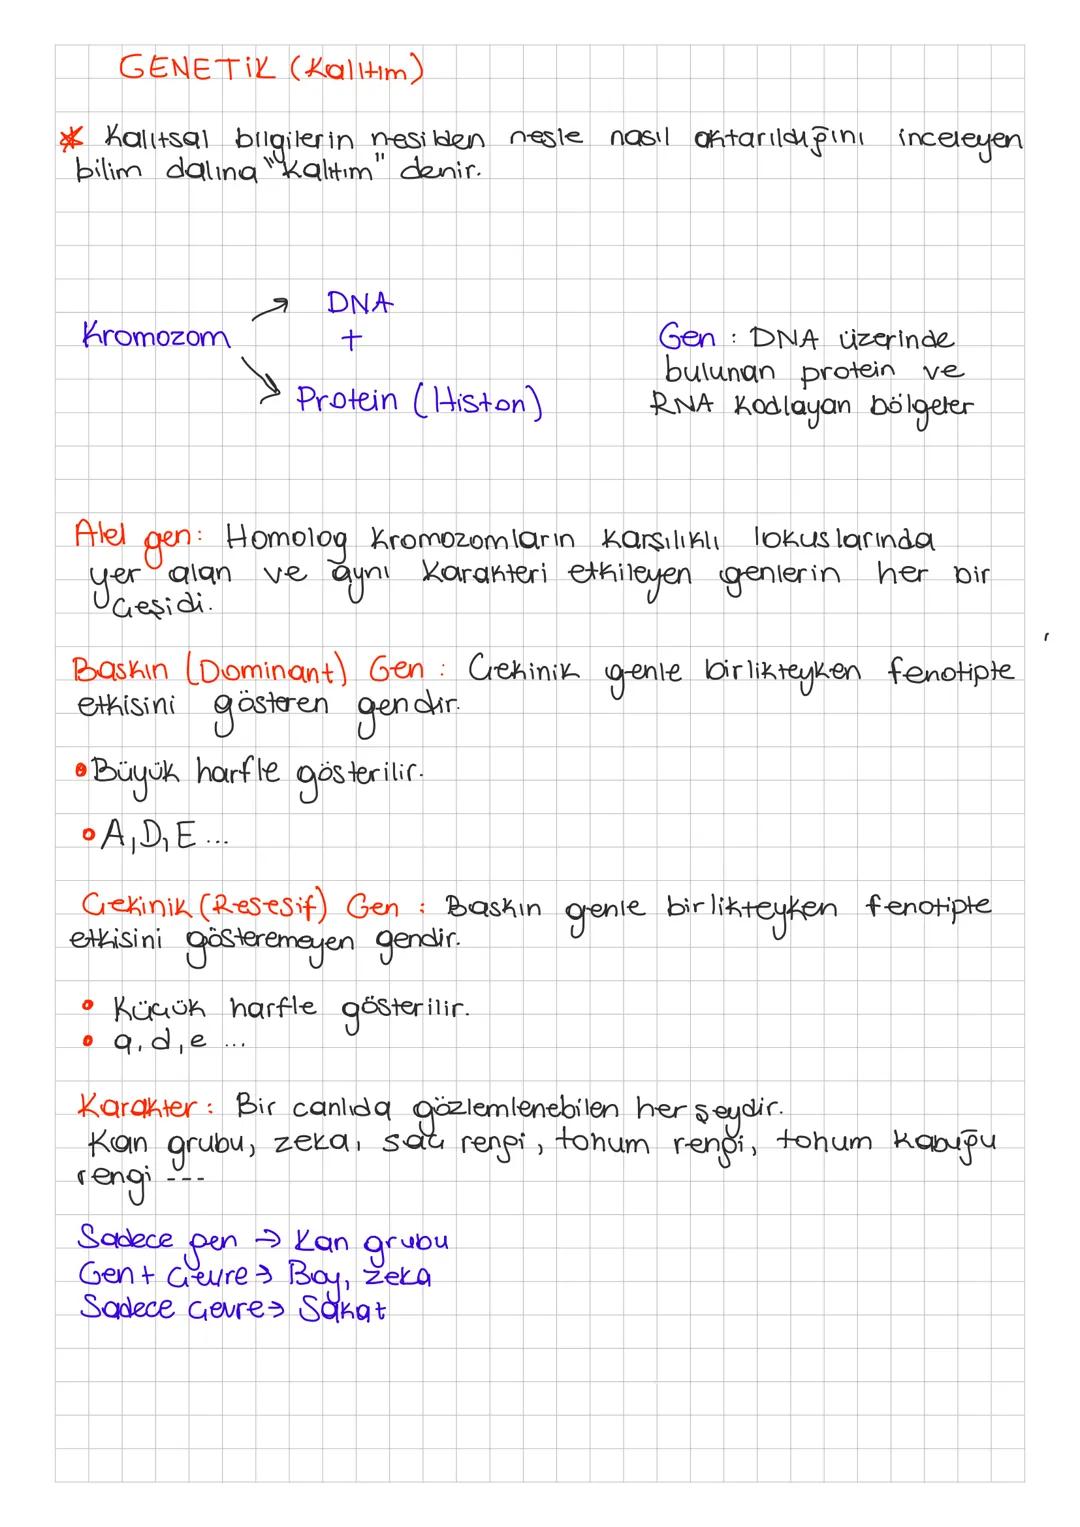 GENETİK (Kalıtım)
* Kalıtsal bilgilerin nesilden nesle nasıl aktarıldığını inceleyen
bilim dalına "Kalıtım" denir.
DNA
Kromozom +
Protein (Histon)
Gen : DNA üzerinde
bulunan protein ve
RNA kodlayan bölgeler
Alel gen: Homolog kromozomların karşılıklı lokuslarında
yer alan ve aynı karakteri etkileyen genlerin her bir
çeşidi.
Baskın (Dominant) Gen : Çekinik genle birlikteyken fenotipte
etkisini gösteren gendir.
• Büyük harfle gösterilir.
• A, D, E ...
Çekinik (Resesif) Gen : Baskın genle birlikteyken fenotipte
etkisini gösteremeyen gendir.
• Küçük harfle gösterilir.
• a, d, e ...
Karakter : Bir canlıda gözlemlenebilen her şeydir.
Kan grubu, zeka, saç rengi, tohum rengi, tohum kabuğu
rengi ---
Sadece gen → Kan grubu
Gen + Çevre → Boy, zeka
Sadece Çevre → Sakat